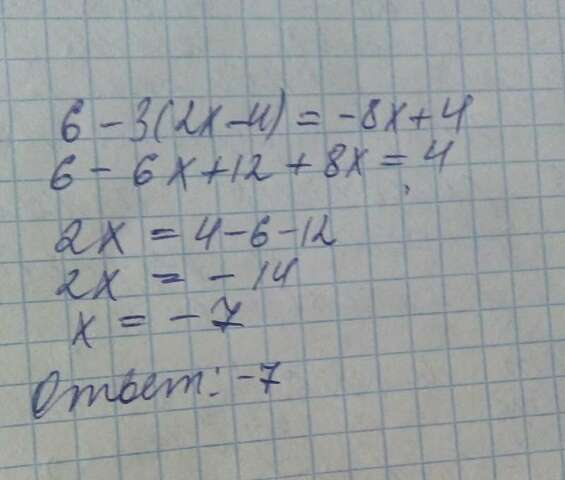 6 - 3(2x-4) = -8x+4
6 - 6x+12 + 8x = 4
2x = 4-6-12
2x = - 14
x = - 7
Ответ: -7